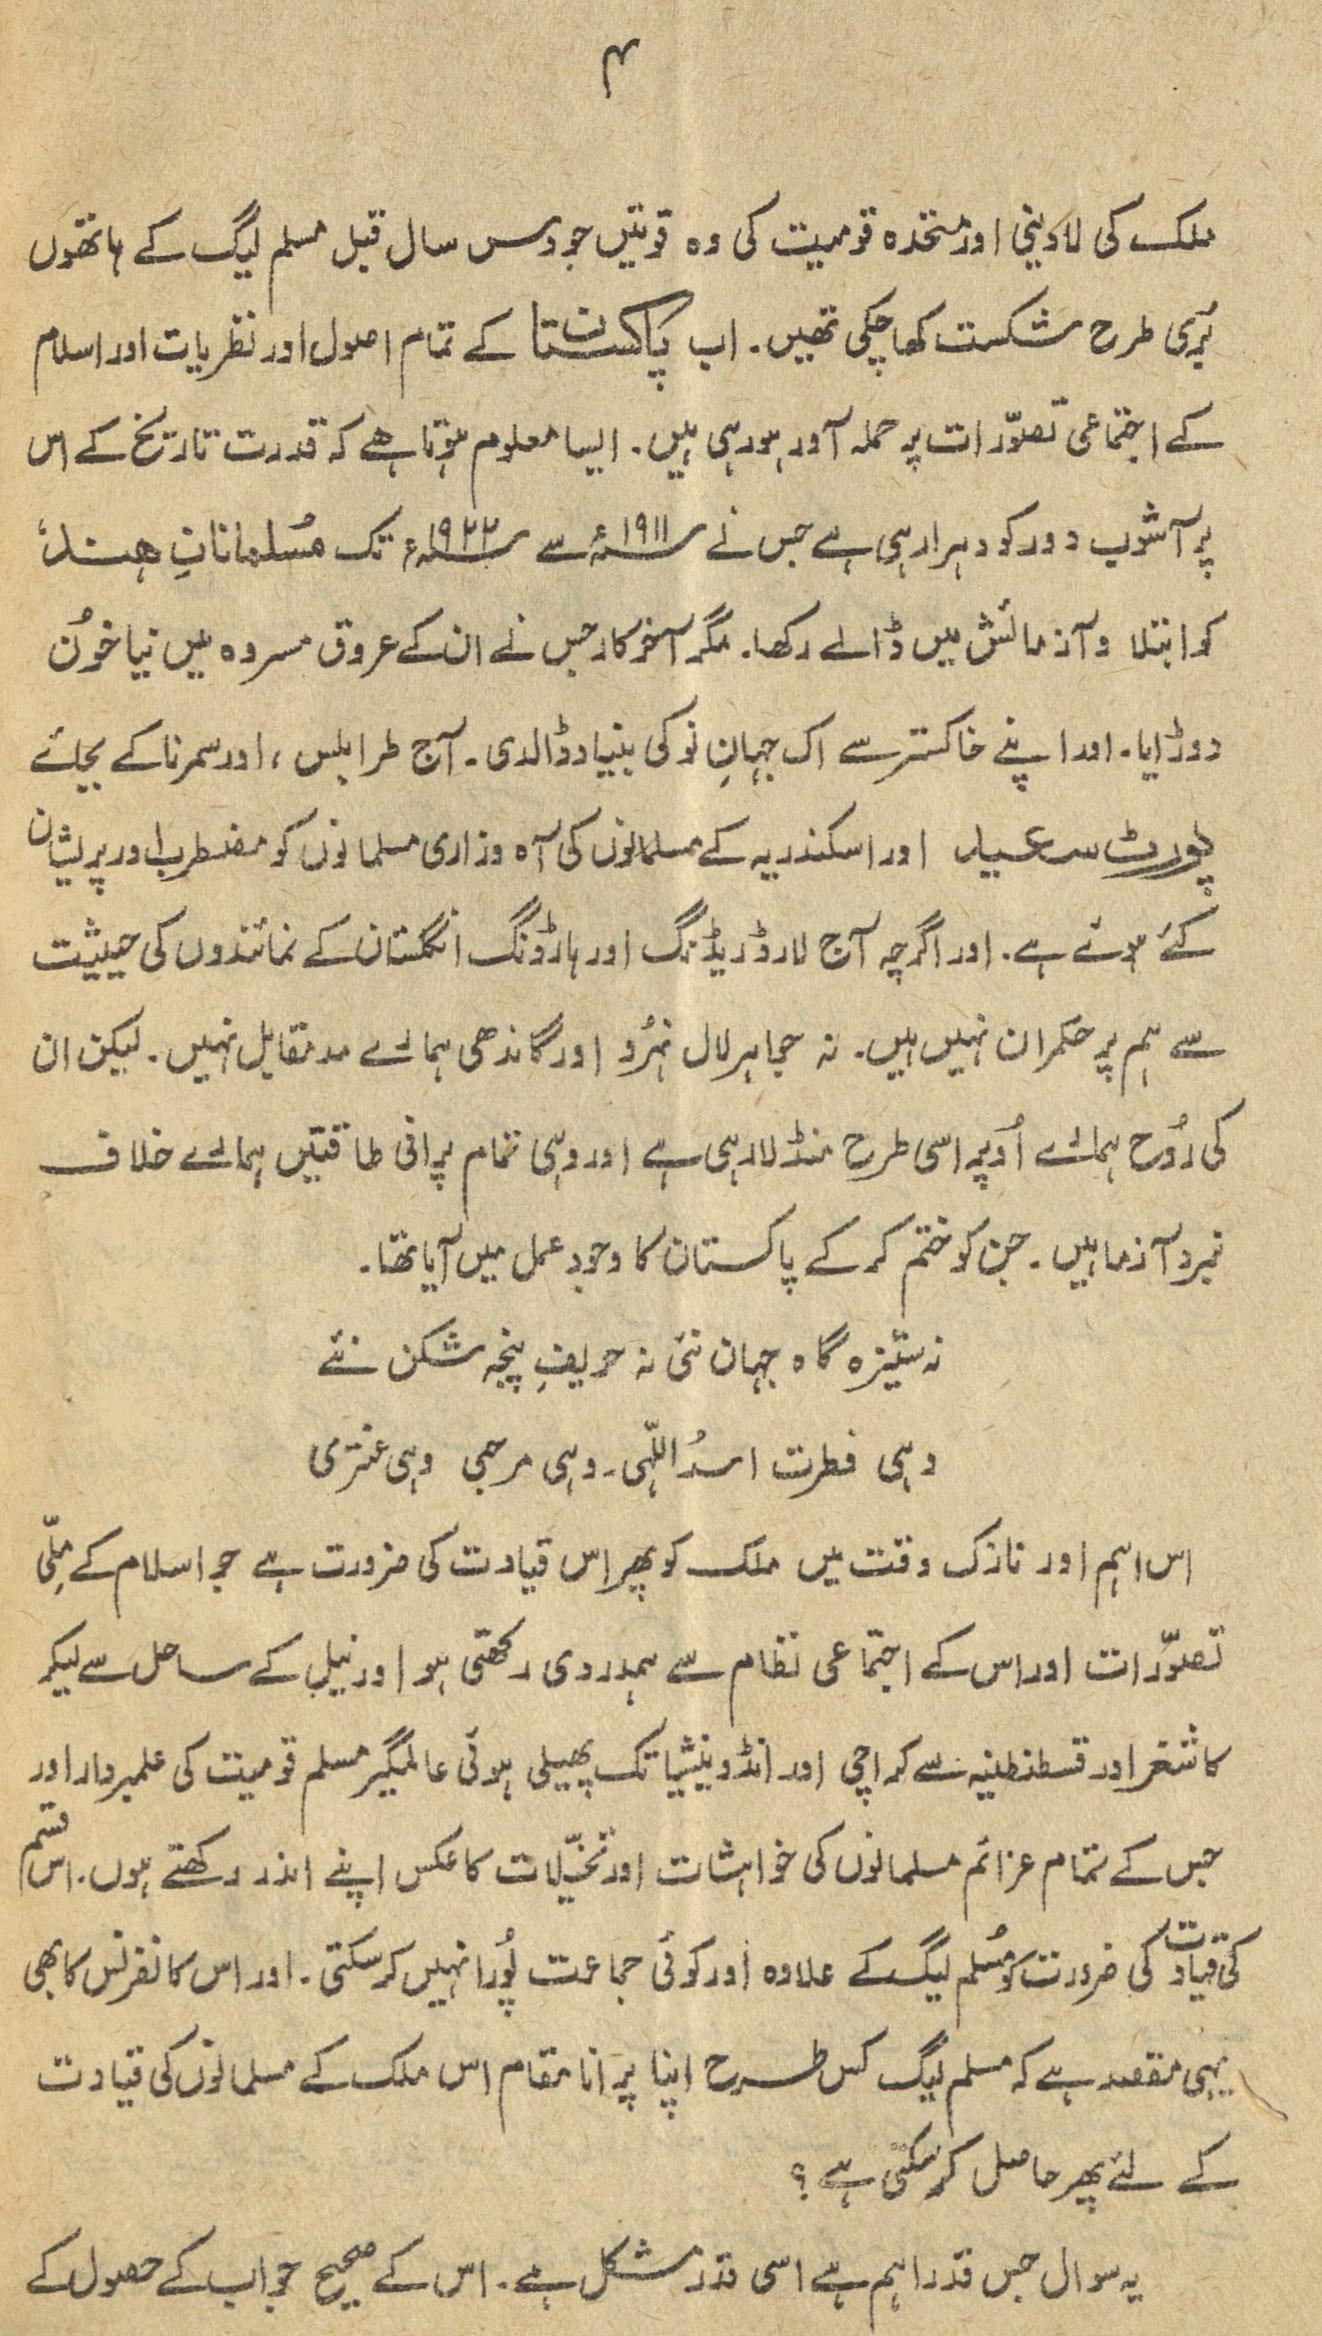 ۴
ملک کی لادینی اور متحدہ قومیت کی وہ قوتیں جو دس سال قبل مسلم لیگ کے ہاتھوں
بُری طرح شکست کھا چکی تھیں۔ اب پاکستان کے تمام اصول اور نظریات اور اسلام
کے اجتماعی تصوّرات پر حملہ آور ہو رہی ہیں۔ ایسا معلوم ہوتا ہے کہ قدرت تاریخ کے اس
پر آشوب دور کو دہرا رہی ہے جس نے ۱۹۱۱ء سے ۱۹۲۲ء تک مُسلمانانِ ہند
کو ابتلا و آزمائش میں ڈالے رکھا۔ مگر آخر کار جس نے ان کے عروق مسردہ میں نیا خوُن
دوڑایا۔ اور اپنے خاکستر سے اک جہانِ نو کی بنیاد ڈالدی۔ آج طرابلس، اور سمرنا کے بجائے
پورٹ سعید اور اسکندریہ کے مسلمانوں کی آہ وزاری مسلمانوں کو مضطرب اور پریشان
کئے ہوئے ہے۔ اور اگرچہ آج لارڈ ریڈنگ اور ہارڈونگ انگلستان کے نمائندوں کی حیثیت
سے ہم پر حکمران نہیں ہیں۔ نہ جواہر لال نہرُو اور گاندھی ہمارے مد مقابل نہیں۔ لیکن ان
کی رُوح ہمارے اُوپر اسی طرح منڈلا رہی ہے اور وہی تمام پرانی طاقتیں ہمارے خلاف
نبرد آزما ہیں۔ جن کو ختم کر کے پاکستان کا وجود عمل میں آیا تھا۔
نہ ستیزہ گاہ جہان نئی نہ حریفِ پنجہ شکن نئے
وہی فطرت اسدُ اللّہی۔ وہی مرحبی وہی عنتری
اس اہم اور نازک وقت میں ملک کو پھر اس قیادت کی ضرورت ہے جو اسلام کے مِلّی
تصوّرات اور اس کے اجتماعی نظام سے ہمدردی رکھتی ہو اور نیل کے ساحل سے لیکر
کاشغر اور قسطنطنیہ سے کراچی اور انڈونیشیا تک پھیلی ہوئی عالمگیر مسلم قومیت کی علمبردار اور
جس کے تمام عزائم مسلمانوں کی خواہشات اور تخیّلات کا عکس اپنے اندر رکھتے ہوں۔ اس قسم
کی قیادت کی ضرورت کو مُسلم لیگ کے علاوہ اور کوئی جماعت پُورا نہیں کر سکتی۔ اور اس کانفرنس کا بھی
یہی مقصد ہے کہ مسلم لیگ کس طرح اپنا پرانا مقام اس ملک کے مسلمانوں کی قیادت
کے لئے پھر حاصل کر سکتی ہے؟
یہ سوال جس قدر اہم ہے اسی قدر مشکل ہے۔ اس کے صحیح جواب کے حصول کے